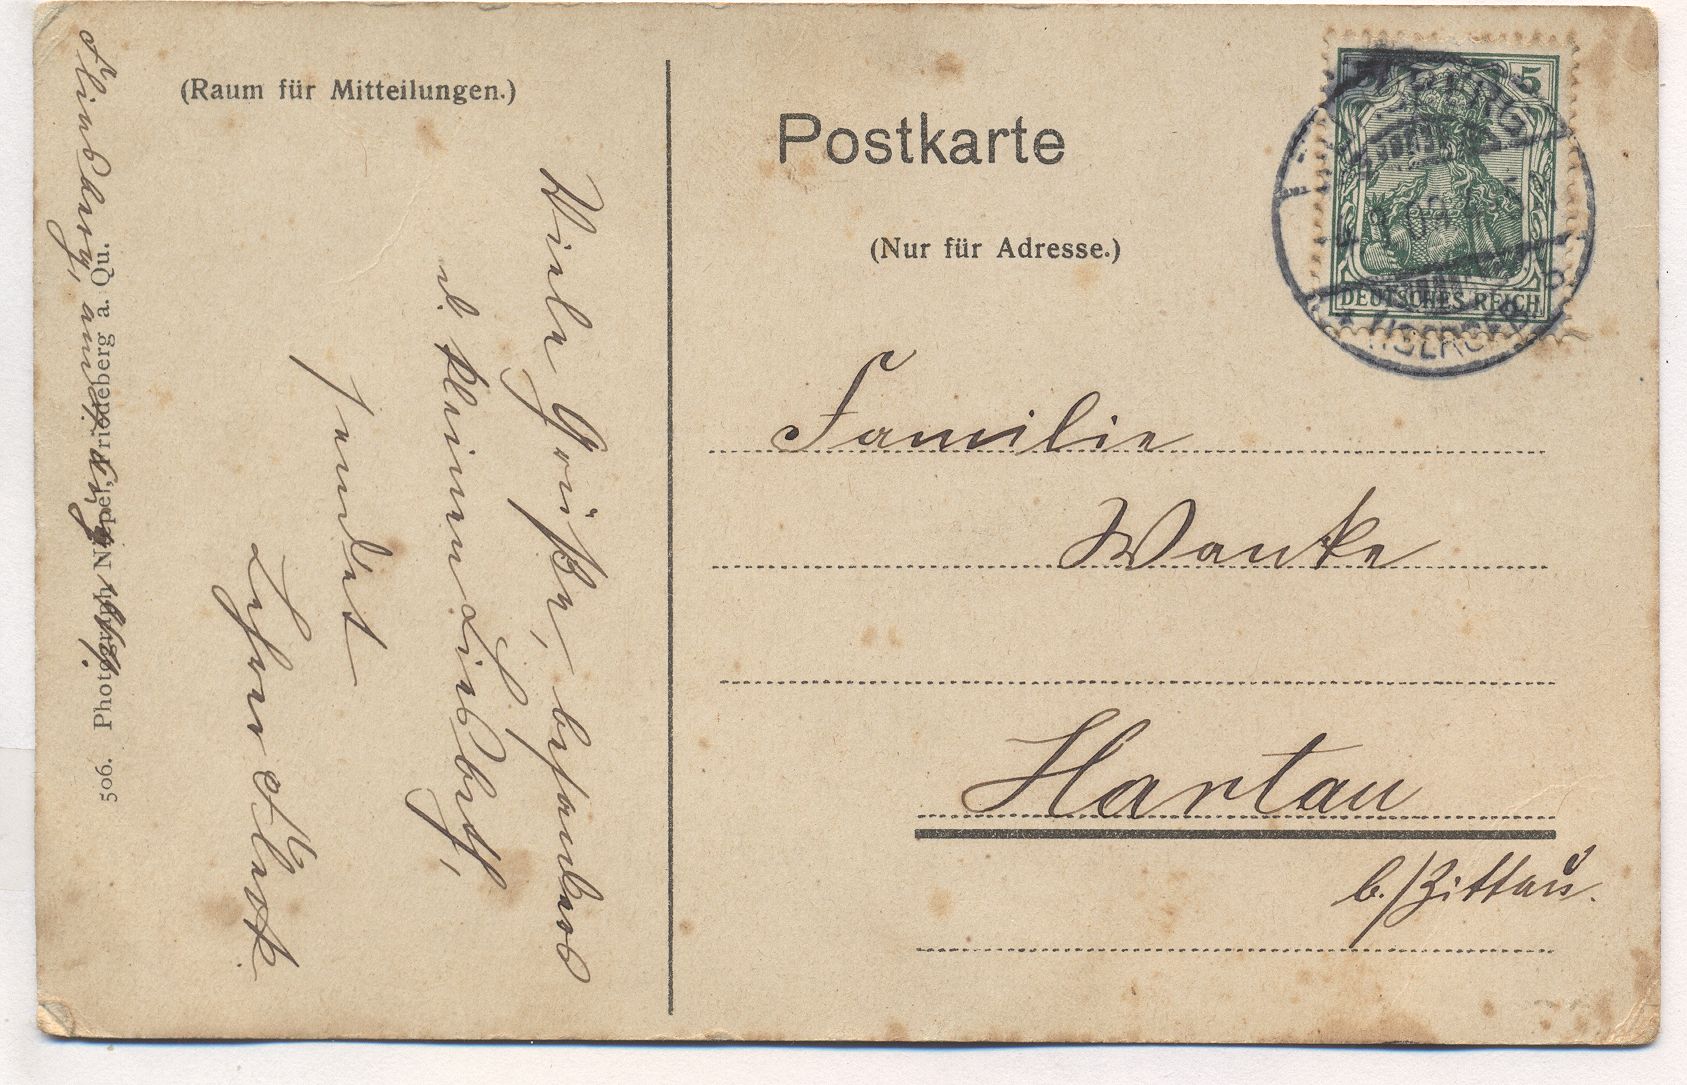 (Raum für Mitteilungen.)
Viele Grüße, besonders
d. kleinen Liesbeth,
sendet
Flinsberg,
506. Photograph Niepel, Friedeberg a. Qu.
Postkarte
(Nur für Adresse.)
5
DEUTSCHES REICH
Familie
Wanke
Hartau
b./Zittau.